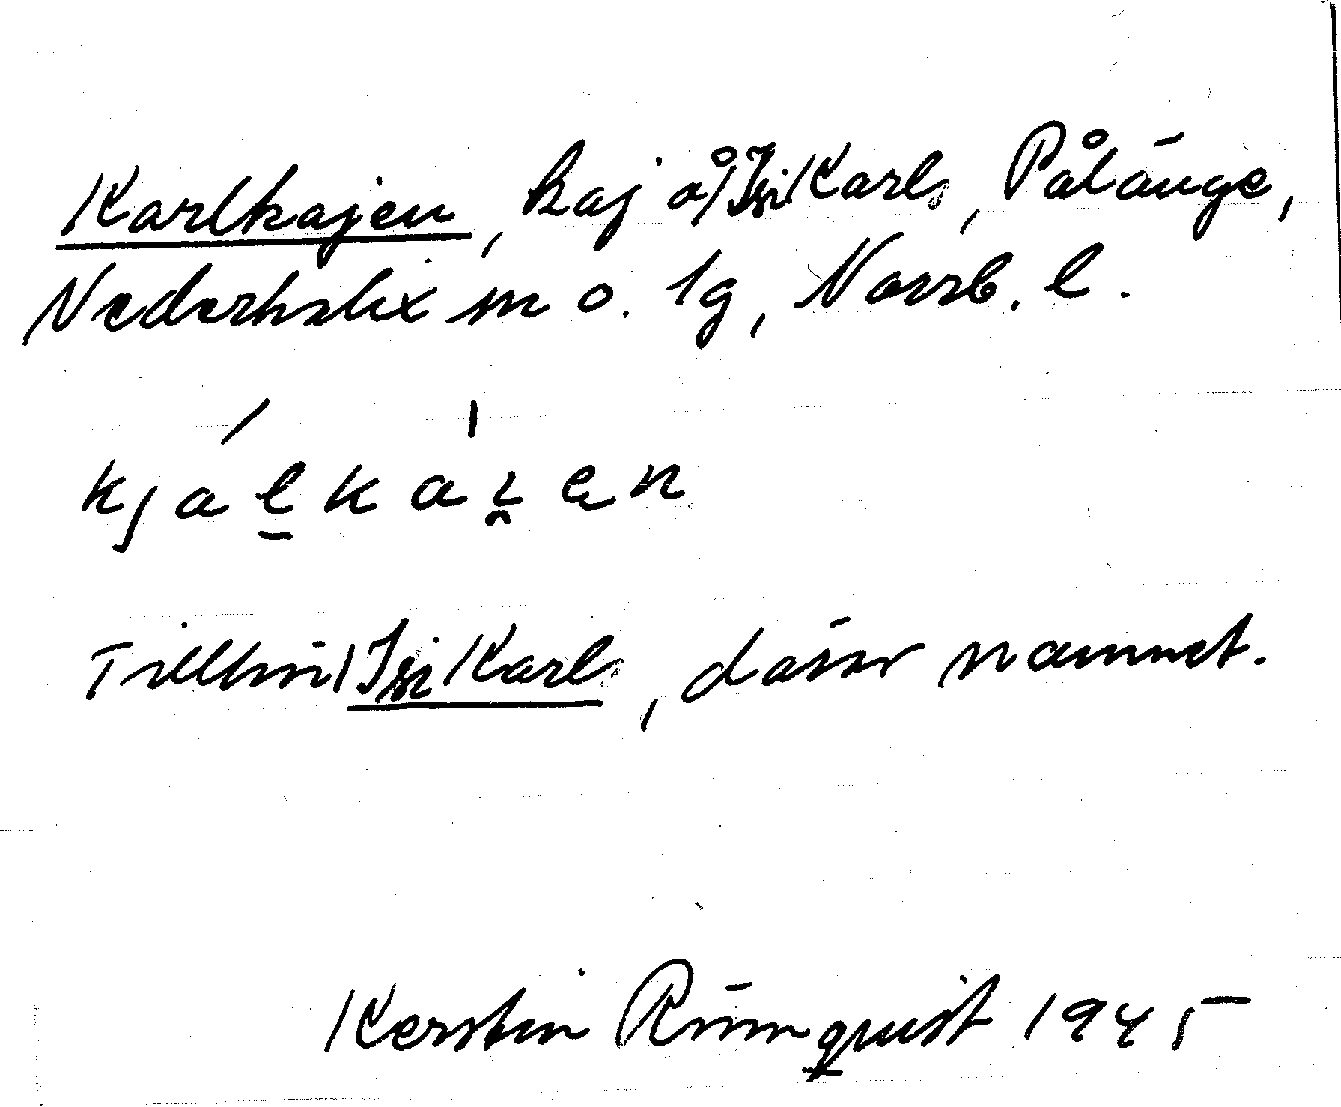 Karlkajen, kaj å Jn Karls, Pålänge,
Nederkalix sn o. lg, Norrb. l.
kjálkáɩen
Tillhör Jn Karls, därav namnet.
Kerstin Rönnquist 1945